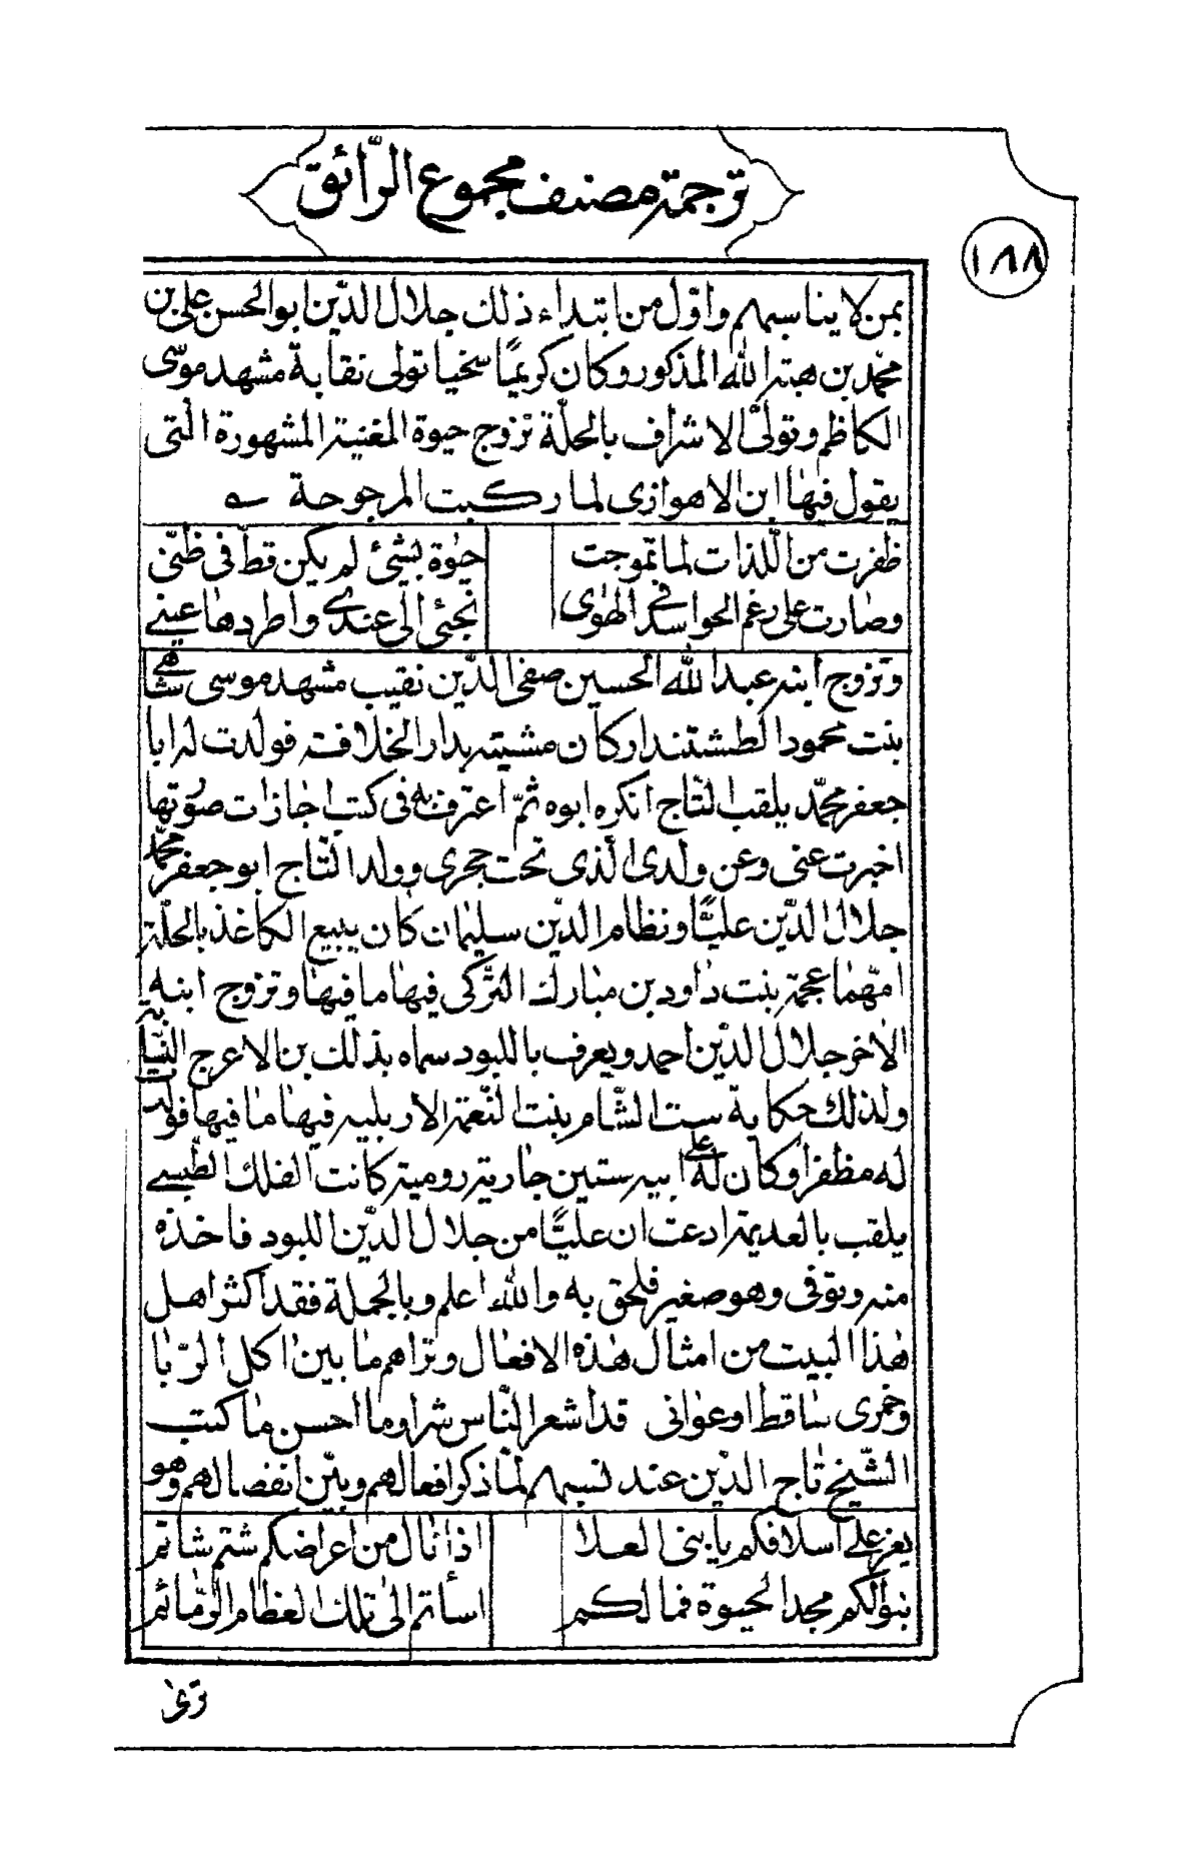 ترجمة مصنف مجموع الرّائق
١٨٨
بمن لا يناسبهم واوّل من ابتداء ذلك جلال الدّين ابو الحسن علي بن
محمّد بن هبة الله المذكور وكان كريمًا سخيا تولى نقابة مشهد موسى
الكاظم وتولىّ الاشراف بالحلّة تزوج حيوة المغنية المشهورة الّتى
يقول فيها ابن الاهوازى لما ركبت المرجوحة
ظفرت من اللّذات لما تموجت
حيٰوة بشيئ لم يكن قطّ فى ظنّى
وصارت على رغم الحواسد فى الهٰوى
تجئى الى عندى واطردها عينى
وتزوج ابنه عبد الله الحسين صفى الدّين نقيب مشهد موسى شاهى
بنت محمود الطشتندار كان مشيته بدار الخلافة فولدت له ابا
جعفر محمّد يلقب التّاج انكره ابوه ثمّ اعترف به فى كتب اجازات صوتها
اخبرت عنى وعن ولدى الّذى تحت حجرى وولد التّاج ابو جعفر محمّد
جلال الدّين عليًّا ونظام الدين سليمان كان يبيع الكاغذ بالحلّة
امّهما عجمة بنت داود بن مبارك التّركى فيها ما فيها وتزوج ابنه
الاخر جلال الدّين احمد ويعرف باللبود سماه بذلك بن الاعرج النّسّابة بنت
ولذلك حكاية ست الشّام بنت النّعمة الاربلية فيها ما فيها فولد
له مظفرا وكان له على ابيه ستين جارية رومية كانت الفلك الطبسى
يلقب بالعديمة ادعت ان عليًّا من جلال الدّين اللبود فاخذه
منه وتوفى وهو صغير فلحق به والله اعلم وبالجملة فقد اكثر اهل
هٰذا البيت من امثال هٰذه الافعال وتراهم ما بين اكل الرّبا
وخمرى ساقط او عوانى قد اشعر النّاس شرا وما احسن ما كتب
الشّيخ تاج الدّين عند نسبهم لمّا ذكر افعالهم وبيّن انفصالهم وهو
يعز على اسلافكم يا بنى العلا
اذا نال من اعراضكم شتم شاتم
بنوا لكم مجد الحيوة فما لكم
اسأتم الى تلك العظام الرّمائم
ترى